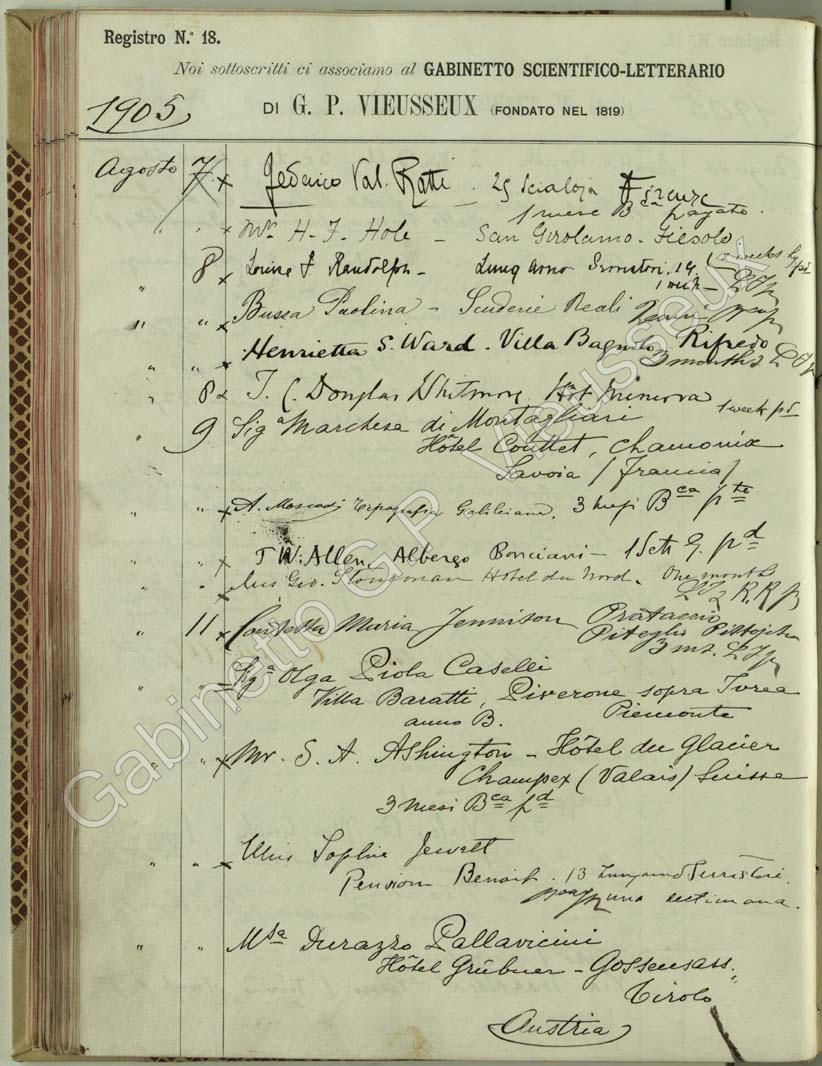 Registro N.º 18.
Noi sottoscritti ci associamo al GABINETTO SCIENTIFICO-LETTERARIO
1905
DI G. P. VIEUSSEUX (FONDATO NEL 1819)
Agosto 7. x Federico Val. Ratti. 25 Scialoja Firenze
1 mese Bca pagato.
" " x H. F. Hole - San Girolamo - Fiesole
" 8 x Louise F Randolph - Lung Arno 14. 2 weeks
1 week -
" " x Bussa Paolina - Scuderie Reali
" " x Henrietta S. Ward - Villa Bagnolo Rifredo
3 months
" 8 x T. C. Douglas Whitmore Hôt Minerva 1 week pd
9 Siga Marchesa di Montagliari
Hôtel Couttet, Chamonix
Savoia (Francia)
" " x A. Tipografia Galileiana. 3 mesi Bca pte
" " x T W. Allen, Albergo Bonciani - 1 Sett G. pd
" " x Geo. Hotel du Nord. One month
R. R
" 11 x Contessa Maria Jennison Prataccio
Piteglio
3 mt.
" " Siga Olga Piola Caselli
Villa Baratti, Piverone sopra Ivrea
anno B. Piemonte
" " x Mr. S. A. Ashington - Hôtel du Glacier
Champex (Valais) Suisse
3 mesi Bca pd
" " x Miss Sophie Jewett
Pension Benoit. 13 Lungarno Serristori.
una settimana.
" " Msa Durazzo Pallavicini
Hôtel Grübner - Gossensass.
Tirolo
Austria
Gabinetto G.P. Vieusseux